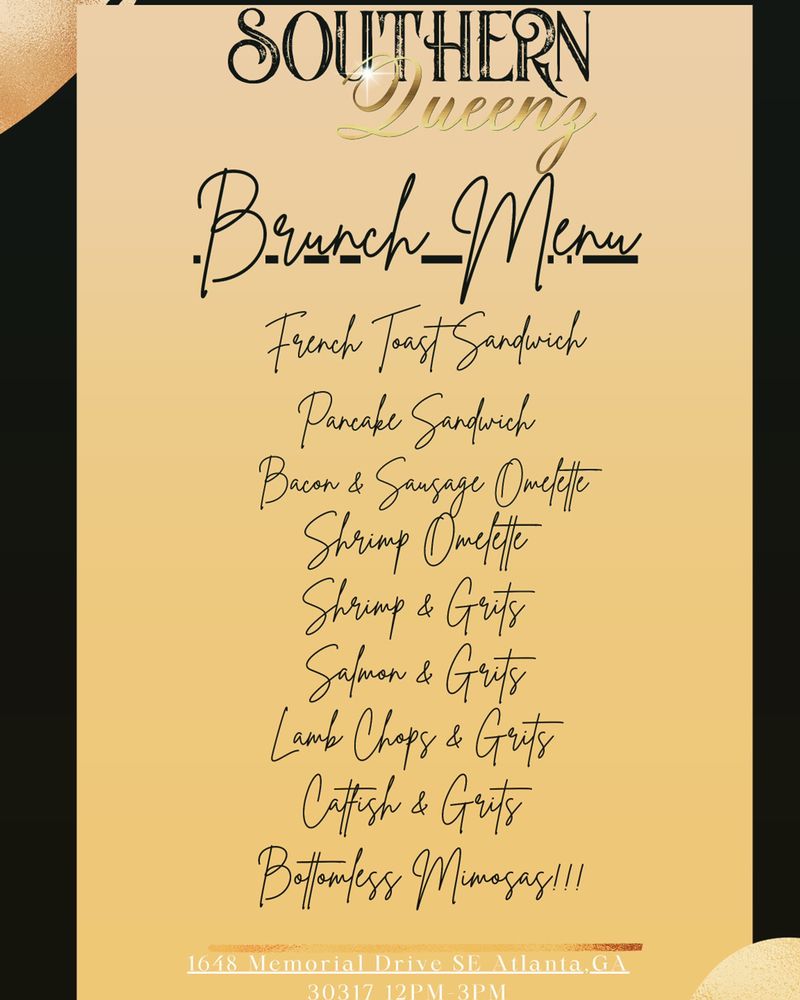 SOUTHERN
Queenz
Brunch Menu
French Toast Sandwich
Pancake Sandwich
Bacon & Sausage Omelette
Shrimp Omelette
Shrimp & Grits
Salmon & Grits
Lamb Chops & Grits
Catfish & Grits
Bottomless Mimosas!!!
1648 Memorial Drive SE Atlanta,GA
30317 12PM-3PM